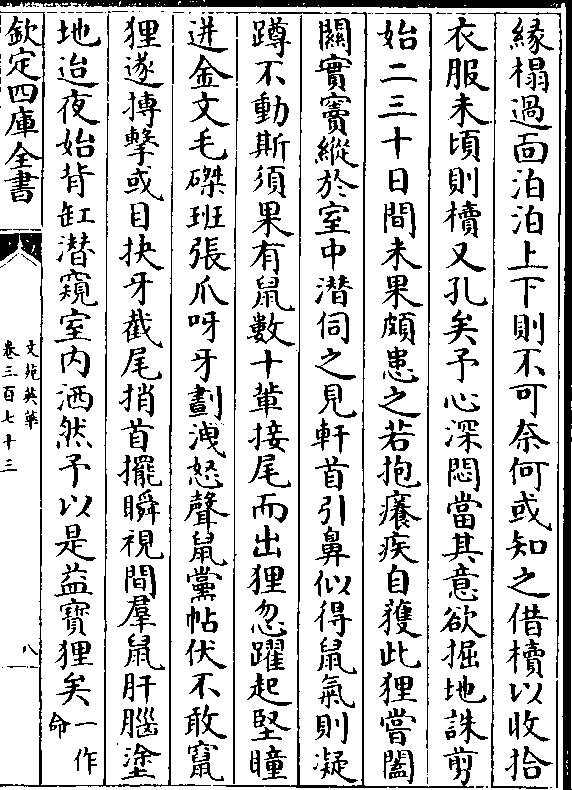 緣榻過面泊泊上下則不可奈何或知之借櫝以收拾
衣服未頃則櫝又孔矣予心深悶當其意欲掘地誅剪
始二三十日間未果頗患之若抱癢疾自獲此狸嘗闔
關實竇縱於室中潜伺之見軒首引鼻似得鼠氣則凝
蹲不動斯須果有鼠數十輩接尾而出狸忽躍起堅瞳
迸金文毛磔班張爪呀牙劃洩怒聲鼠黨帖伏不敢竄
狸遂搏擊或目抉牙截尾捎首擺瞬視間羣鼠肝腦塗
地迨夜始背缸潜窺室内洒然予以是益寳狸矣一作命
欽定四庫全書
文苑英華
卷三百七十三
八